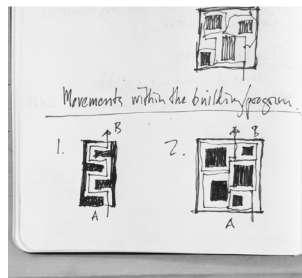 Movements within the building/program.
1. B 2. B
A A